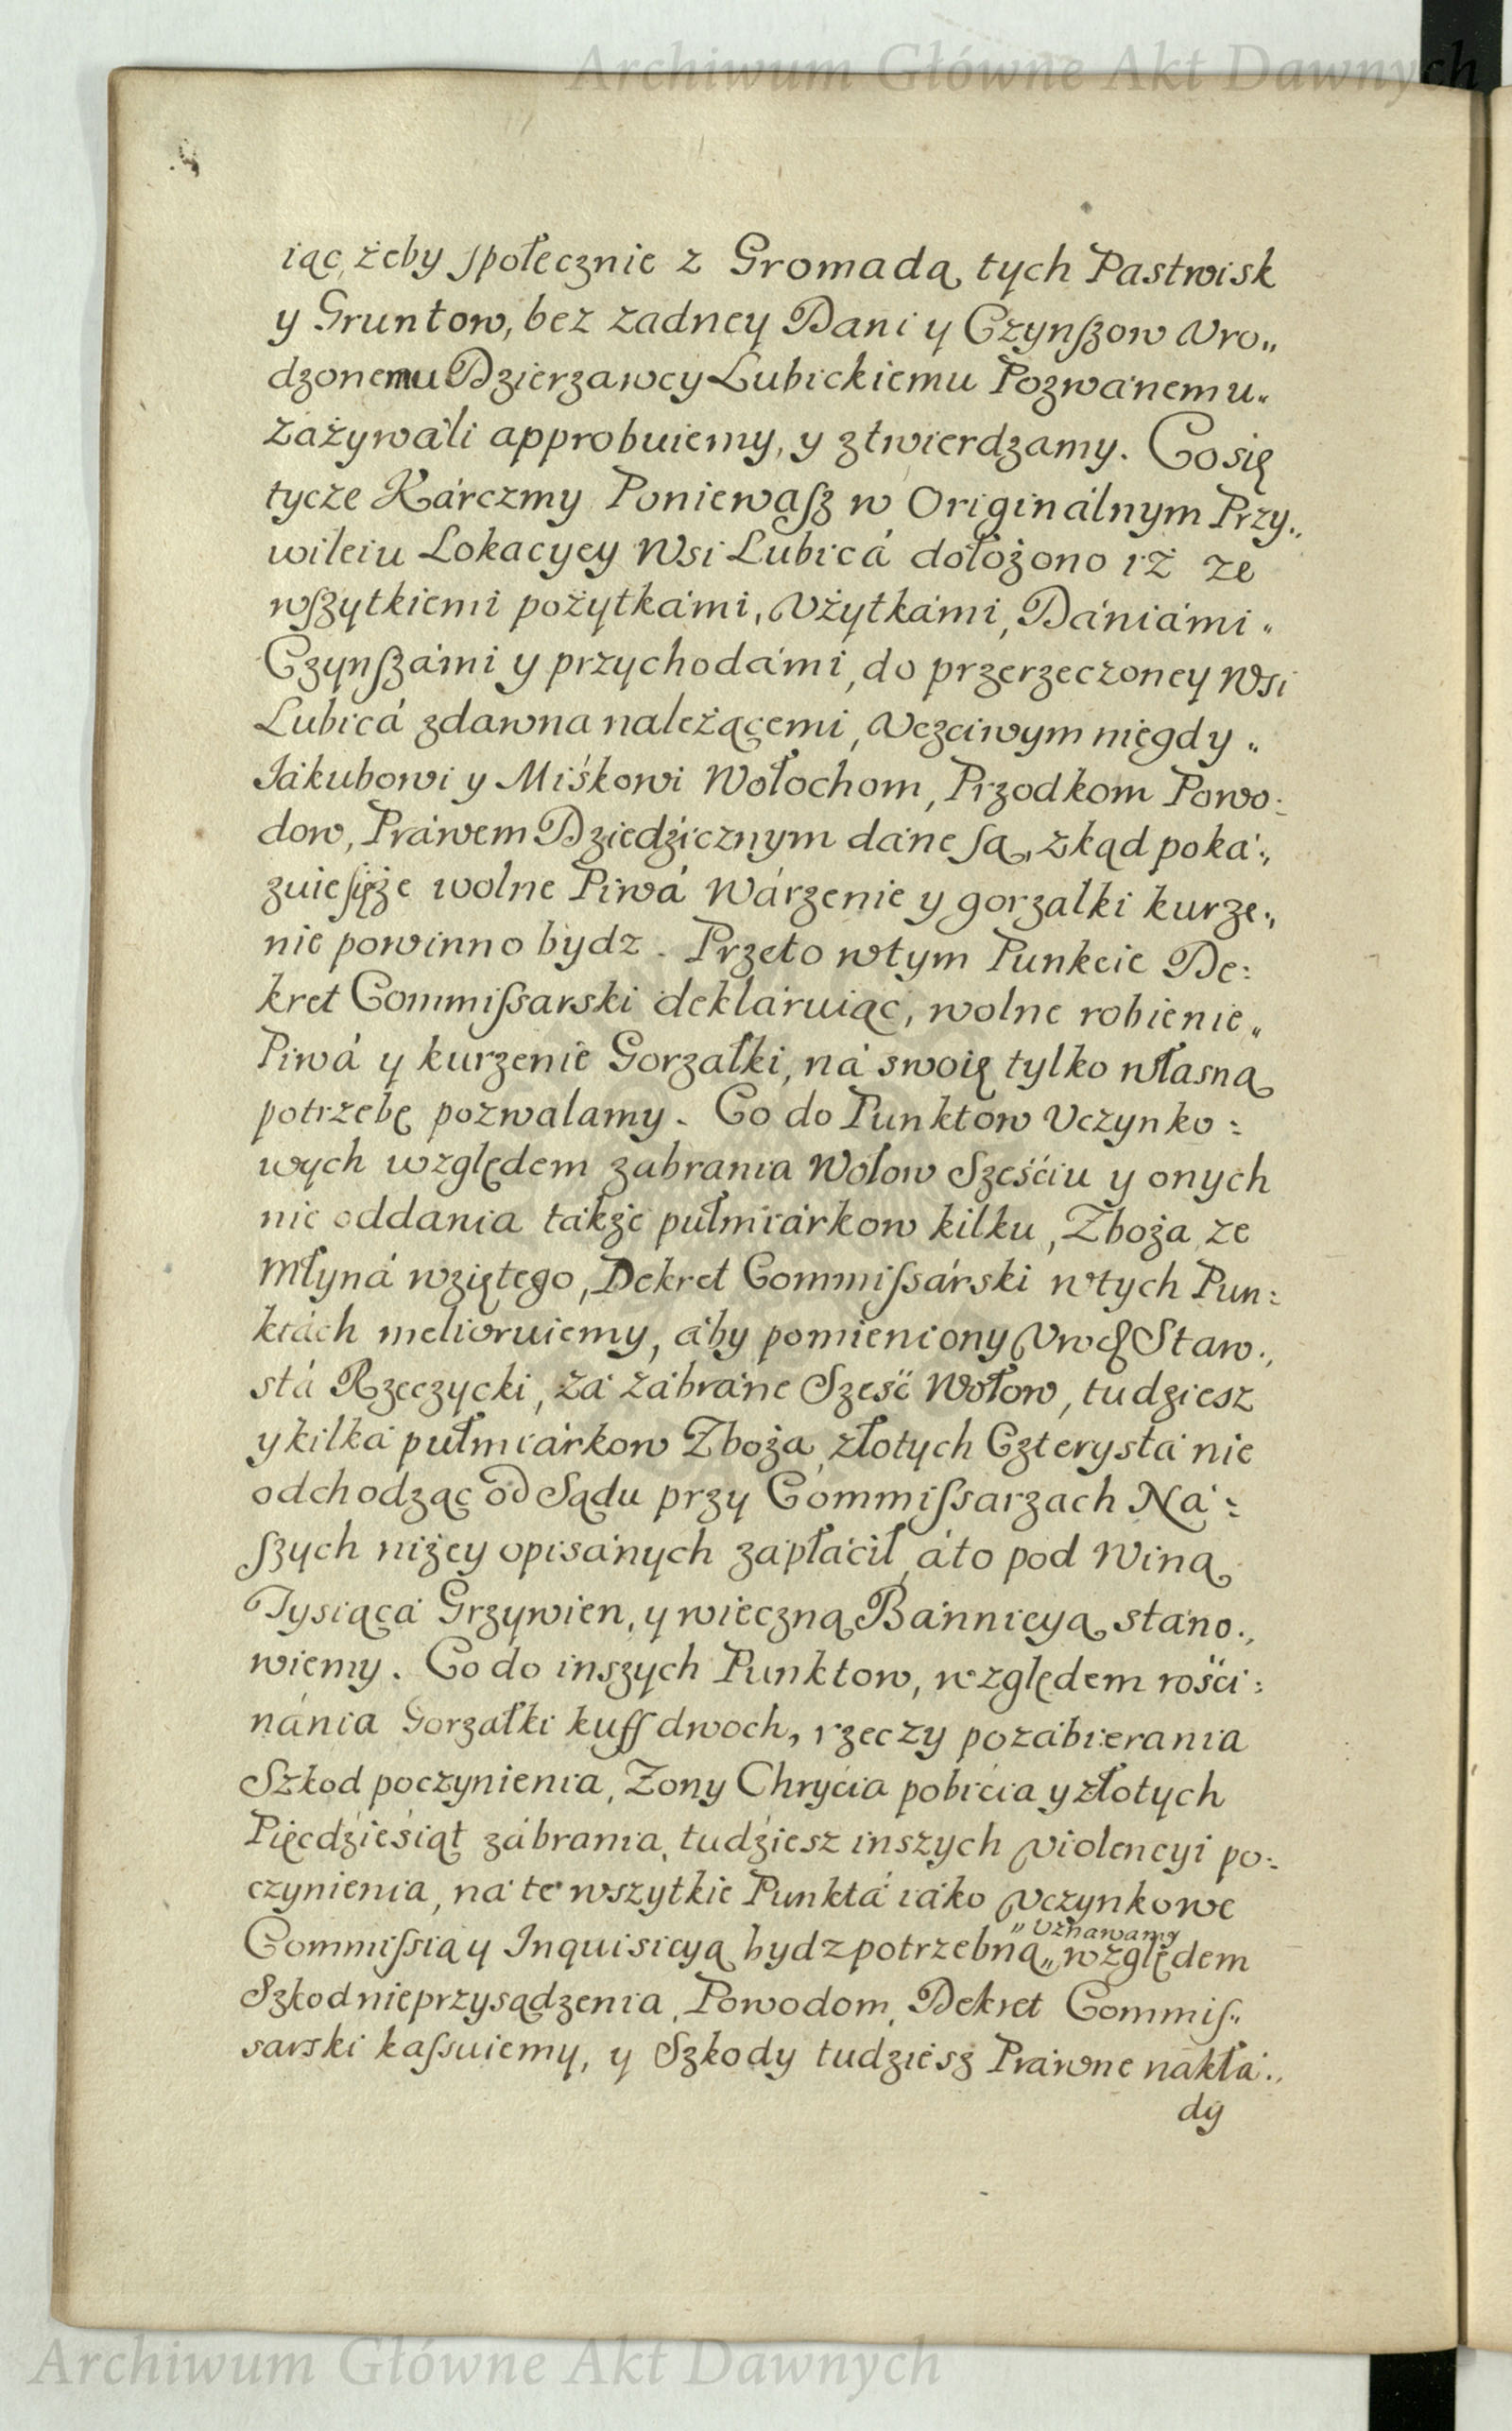 Archiwum Główne Akt Dawnych
iąc, żeby społecznie z Gromadą tych Pastwisk
y Gruntow, bez zadney Dani y Czynszow Uro„
dzonemu Dzierzawcy Lubickiemu Pozwánemu„
zażywáli approbuiemy, y ztwierdzamy. Co się
tycze Kárczmy Poniewasz w Originálnym Przy„
wileiu Lokacyey Wsi Lubicá dołożono iż ze
wszytkiemi pożytkámi, Użytkámi, Dániámi„
Czynszámi y przychodámi, do przerzeczoney Wsi
Lubicá zdawna należącemi, Uczciwym niegdy„
Jákubowi y Miśkowi Wołochom, Przodkom Powo:
dow, Práwem Dziedźicznym dáne są, zkąd poká„
zuie się że wolne Piwá Wárzenie y gorzalki kurze„
nie powinno bydz. Przeto w tym Punkcie De:
kret Commissarski dekláruiąc, wolne robienie„
Piwá y kurzenie Gorzałki, ná swoię tylko własną
potrzebę pozwalamy. Co do Punktow Uczynko:
wych względem zabrania Wołow Sześćiu y onych
nie oddania tákże pułmiárkow kilku, Zboża ze
Młyná wziętego, Dekret Commissárski w tych Pun:
ktách melioruiemy, áby pomieniony Starw„
stá Rzeczycki, zá zábráne Sześć Wołow, tudziesz
y kilká pułmiárkow Zboża złotych Czterystá nie
odchodząc od Sądu przy Commissarzach Ná:
szych niżey opisánych zápłácił, á to pod Winą
Tysiącá Grzywien, y wieczną Bánnicyą stáno„
wiemy. Co do inszych Punktow, względem rośći:
nánia Gorzałki kuff dwoch, rzeczy pozábierania
Szkod poczynienia, Zony Chryćia pobićia y złotych
Pięcdźieśiąt zábrania, tudźiesz inszych violencyi po:
czynienia, ná te wszytkie Punktá iáko uczynkowe
Commissią y Inquisicyą bydz potrzebną „Uznawamy„ względem
Szkod nieprzysądzenia, Powodom, Dekret Commis„
sarski kassuiemy, y Szkody tudziesz Práwne nákłá„
dy
Archiwum Główne Akt Dawnych